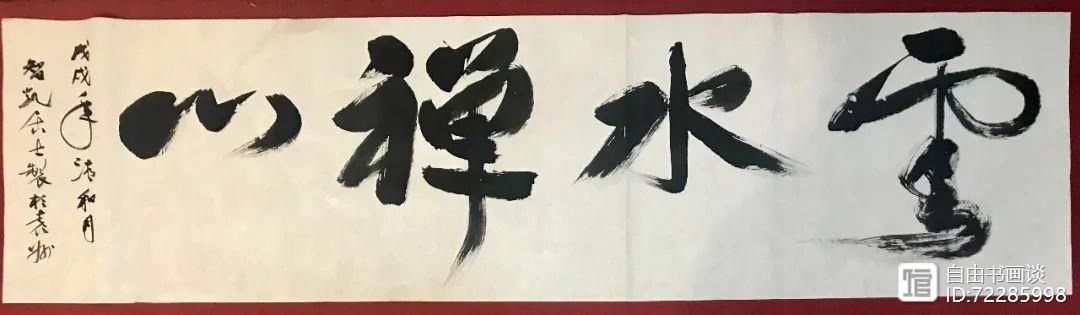 雲水禪心
戊戌年清和月
智凯居士製於袁州
自由书画谈
ID:72285998